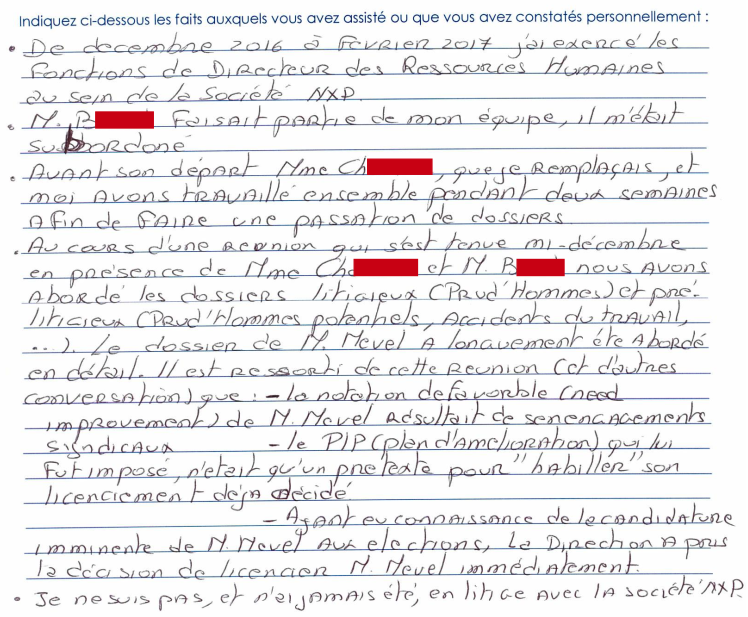 Indiquez ci-dessous les faits auxquels vous avez assisté ou que vous avez constatés personnellement :
• De decembre 2016 à Fevrier 2017 j'ai exercé les
Fonctions de Directeur des Ressources Humaines
au sein de la Société NXP.
• M. B Faisait partie de mon équipe, il m'était
subordoné
• Avant son départ Mme Ch , que je Remplaçais, et
moi avons travaillé ensemble pendant deux semaines
afin de faire une passation de dossiers
• Au cours d'une reunion qui s'est tenue mi-décembre
en présence de Mme Cha et M. B nous avons
abordé les dossiers litigieux (Prud'Hommes) et pré-
litigieux (Prud'Hommes potentiels, Accidents du travail,
...). Le dossier de M. Mevel a longuement été abordé
en détail. Il est ressorti de cette reunion (et d'autres
conversation) que : - la notation defavorable (need
improvement) de M. Mevel résultait de sen engagements
syndicaux - le PIP (plan d'amelioration) qui lui
fut imposé, n'etait qu'un pretexte pour "habiller" son
licenciement déja décidé
- Ayant eu connaissance de la candidature
imminente de M. Mevel aux elections, la Direction a pris
la décision de licencier M. Mevel immédiatement.
• Je ne suis pas, et n'ai jamais été, en litige avec la société NXP.